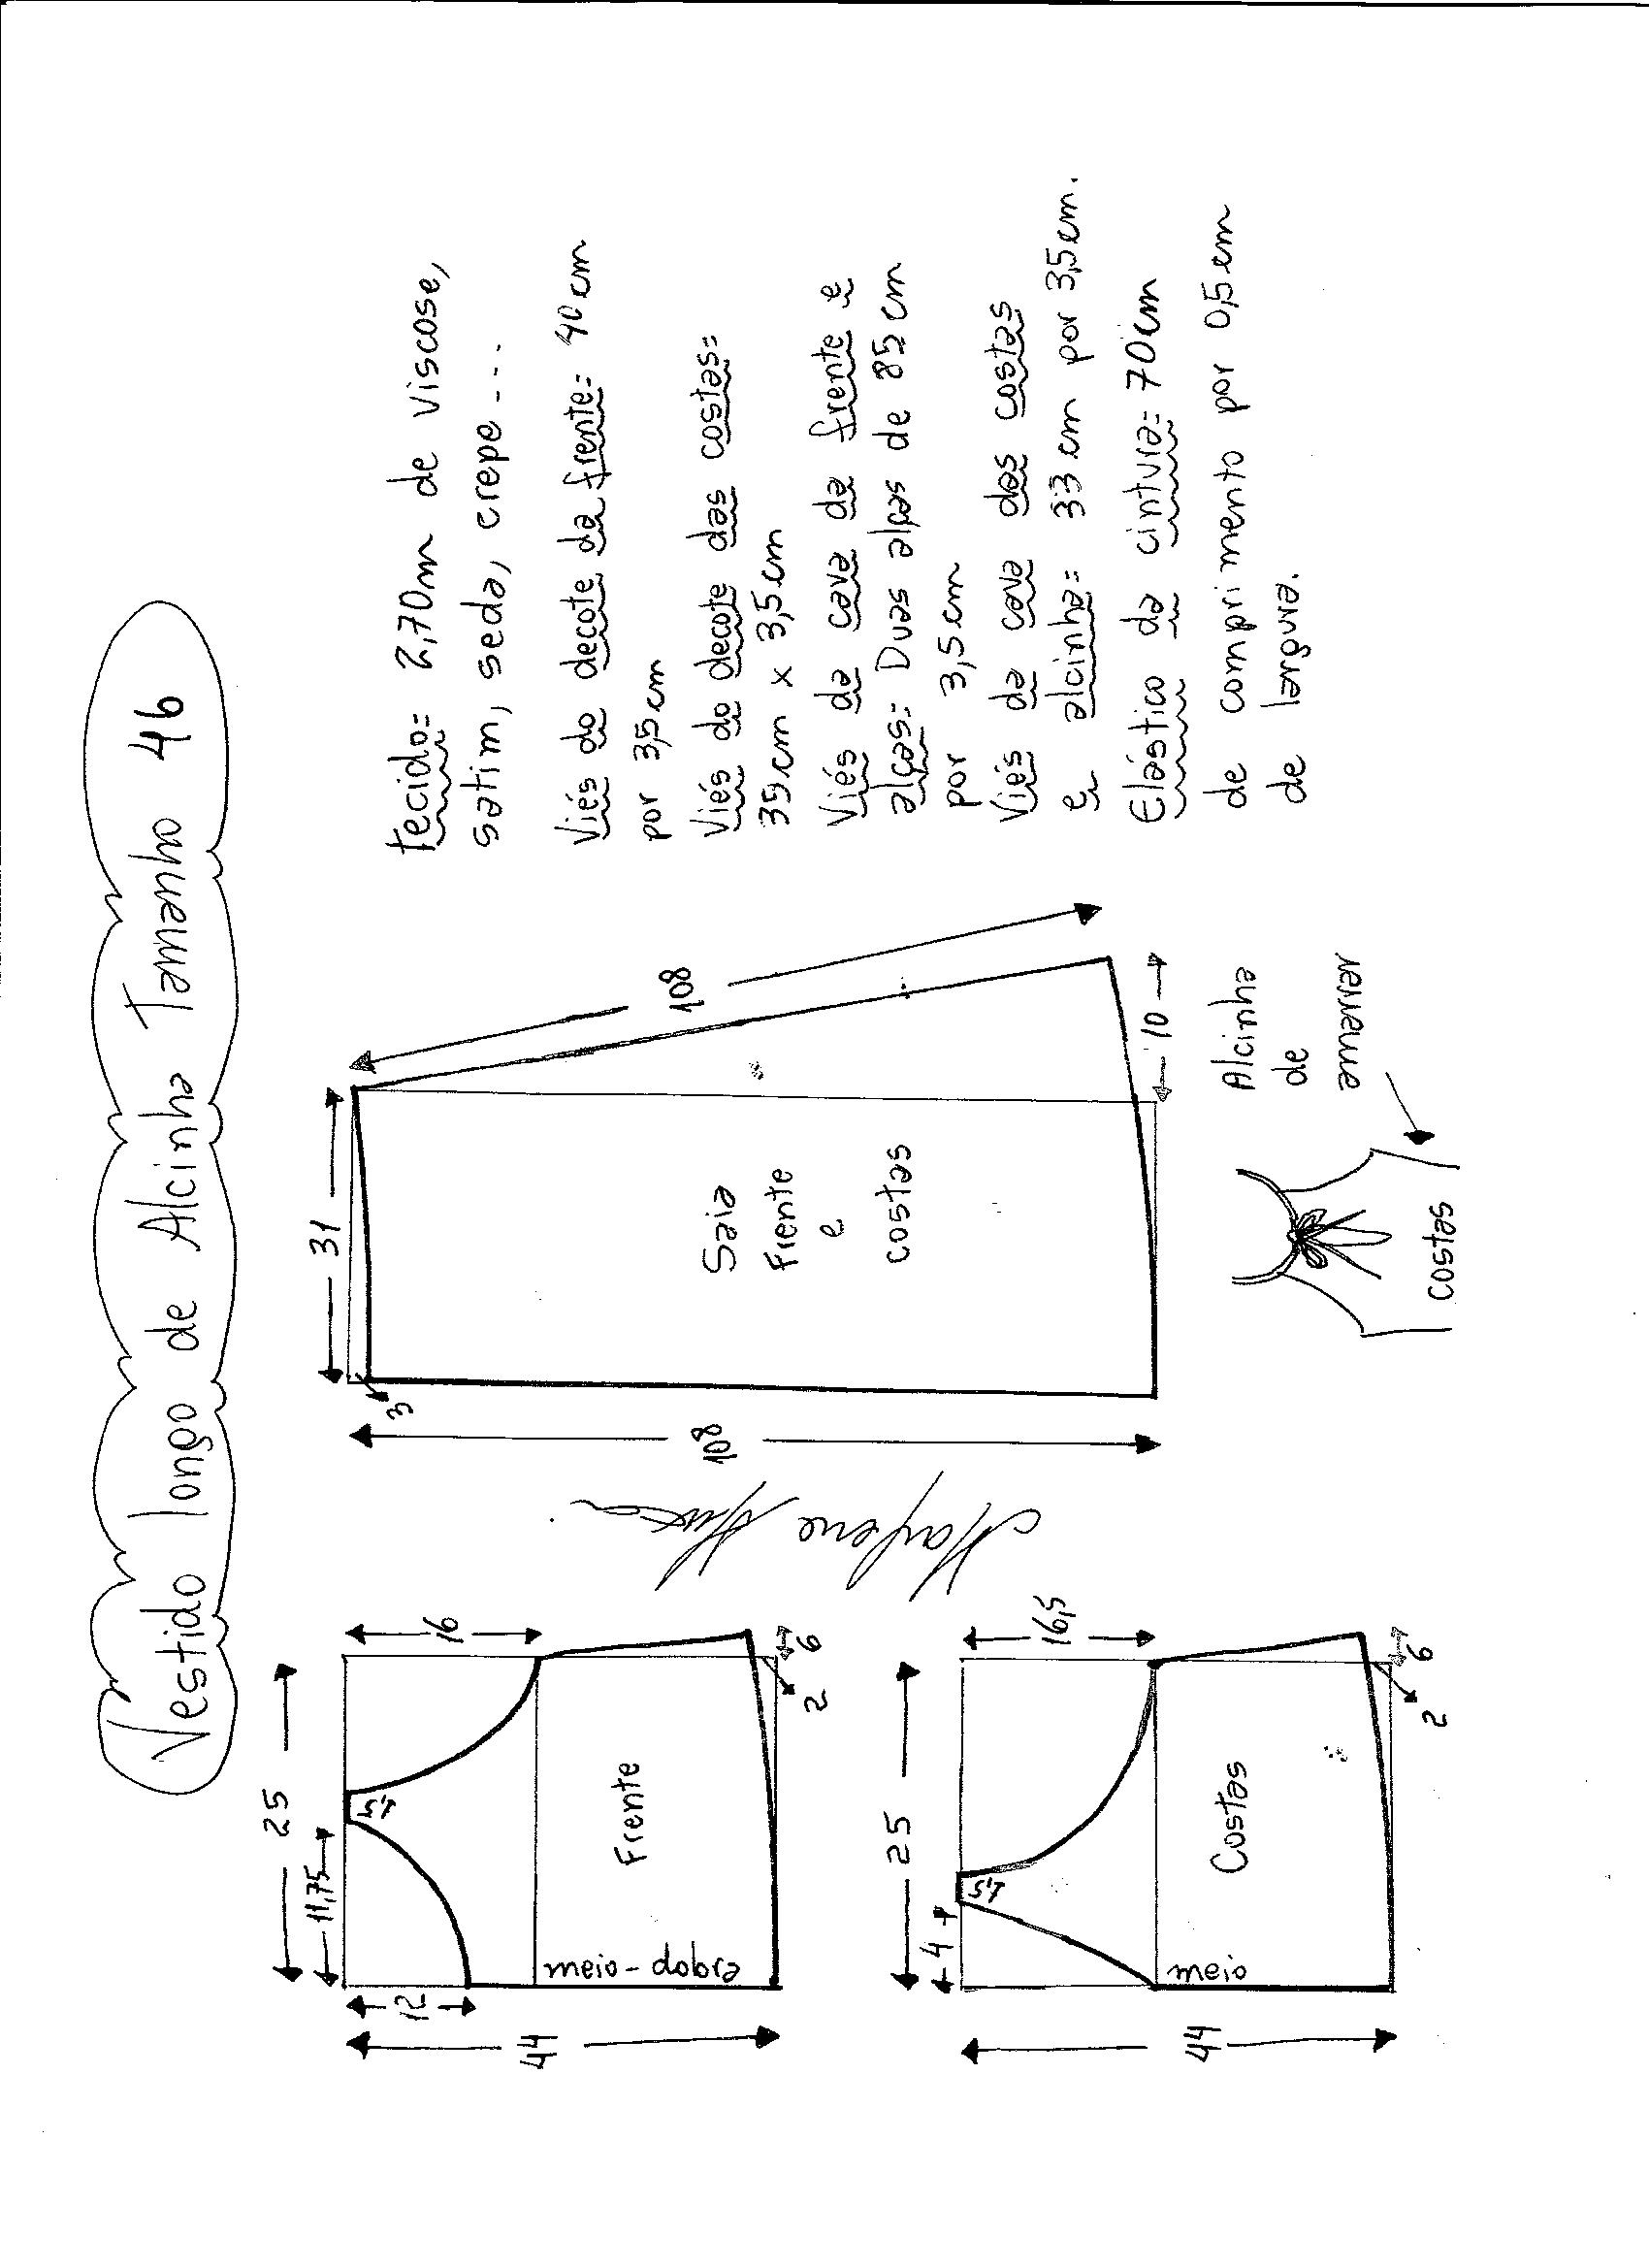 Vestido longo de Alcinha Tamanho 46
25
11,75
12
44
1,5
16
Frente
meio-dobra
6
2
25
4
44
1,5
16,5
Costas
meio
6
2
31
3
108
108
Saia
Frente
e
costas
10
Alcinha
de
amarrar
costas
tecido= 2,70m de viscose,
satim, seda, crepe ....
Viés do decote da frente= 40cm
por 3,5cm
Viés do decote das costas=
35cm x 3,5cm
Viés da cava da frente e
alças= Duas alças de 85cm
por 3,5cm
Viés da cava das costas
e alcinha= 33cm por 3,5cm.
Elástico da cintura= 70cm
de comprimento por 0,5cm
de largura.